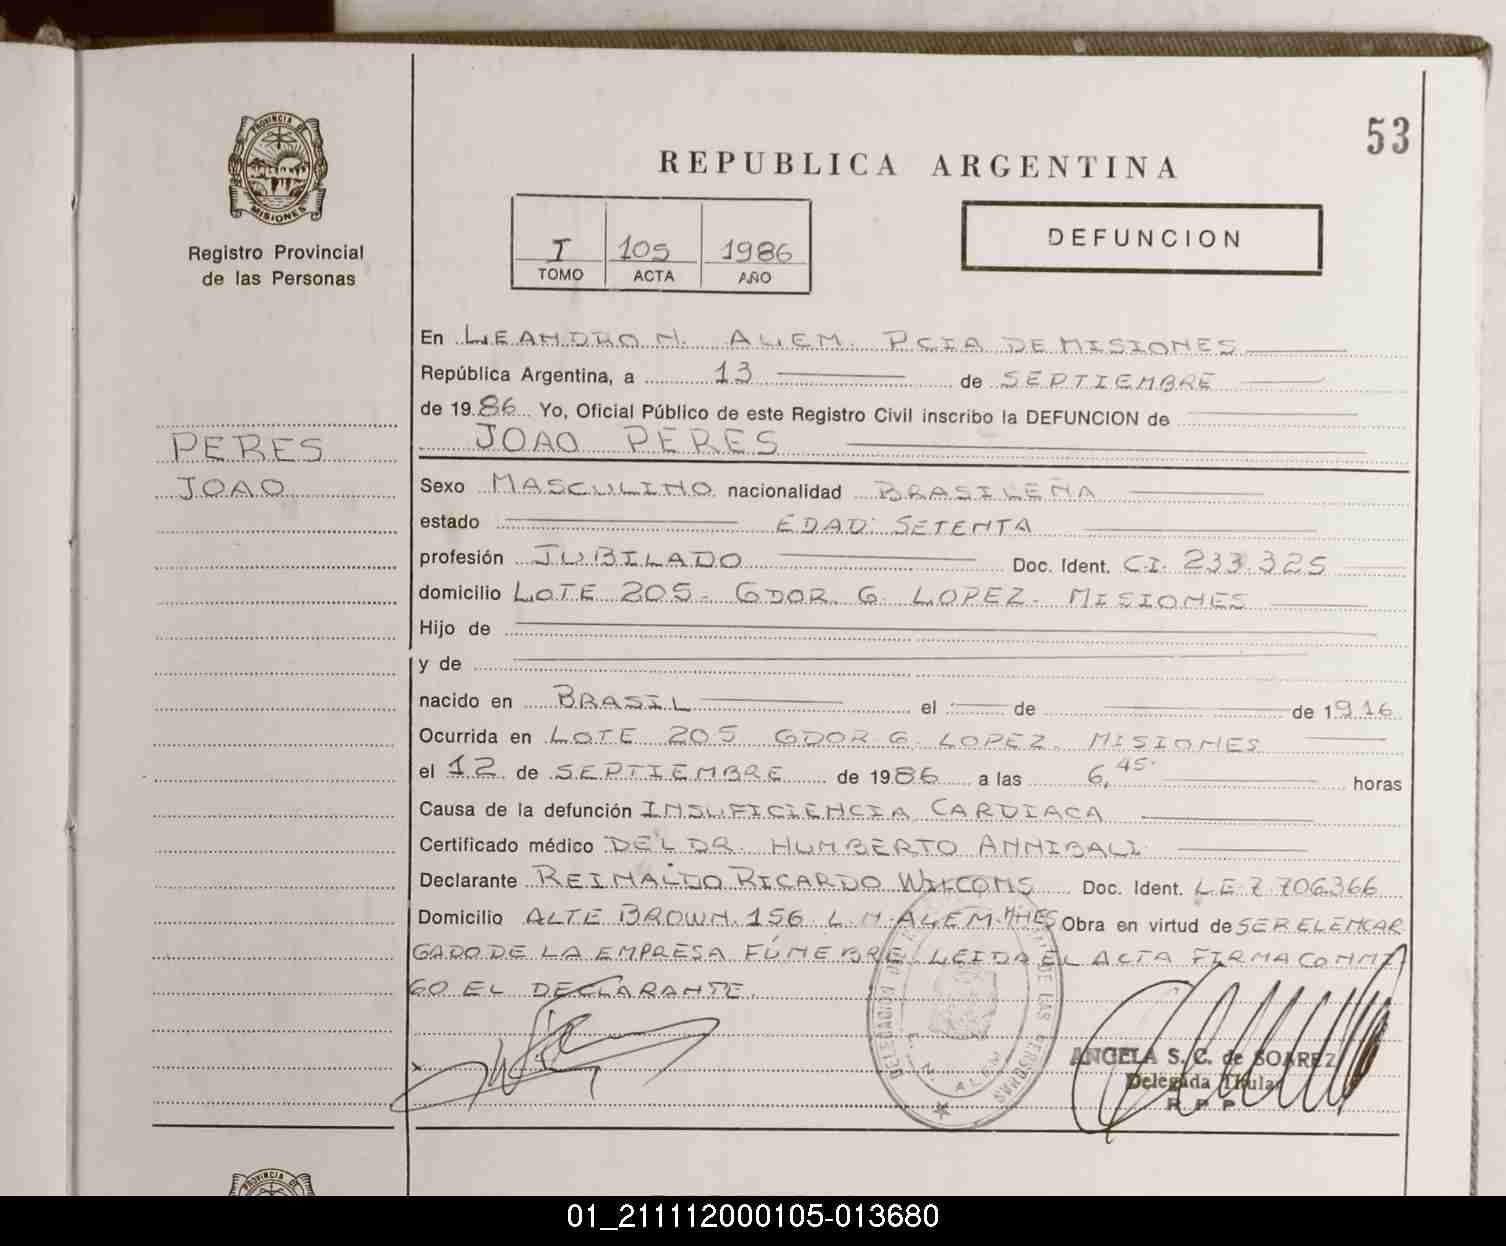 53
PROVINCIA DE
MISIONES
REPUBLICA ARGENTINA
Registro Provincial
de las Personas
I 105 1986
TOMO ACTA AÑO
DEFUNCION
En LEANDRO N. ALEM. PCIA DE MISIONES
República Argentina, a 13 de SEPTIEMBRE
de 1986 Yo, Oficial Público de este Registro Civil inscribo la DEFUNCION de
JOAO PERES
PERES
JOAO
Sexo MASCULINO nacionalidad BRASILEÑA
estado EDAD: SETENTA
profesión JUBILADO Doc. Ident. C.I. 233.325
domicilio LOTE 205- GDOR. G. LOPEZ- MISIONES
Hijo de
y de
nacido en BRASIL el de de 1916
Ocurrida en LOTE 205 GDOR G. LOPEZ. MISIONES
el 12 de SEPTIEMBRE de 1986 a las 6,45 horas
Causa de la defunción INSUFICIENCIA CARDIACA
Certificado médico DEL DR. HUMBERTO ANNIBALI
Declarante REINALDO RICARDO Doc. Ident. L.E. 7.706.366
Domicilio ALTE BROWN. 156 L.N. ALEM. MNES Obra en virtud de SER EL ENCAR
GADO DE LA EMPRESA FÚNEBRE. LEIDA EL ACTA FIRMA CONMI
GO EL DECLARANTE.
DELEGACION DE LAS PERSONAS
L. N. ALEM
ANGELA S. C. de SOAREZ
Delegada Titular
R P P
PROVINCIA DE
01_211112000105-013680